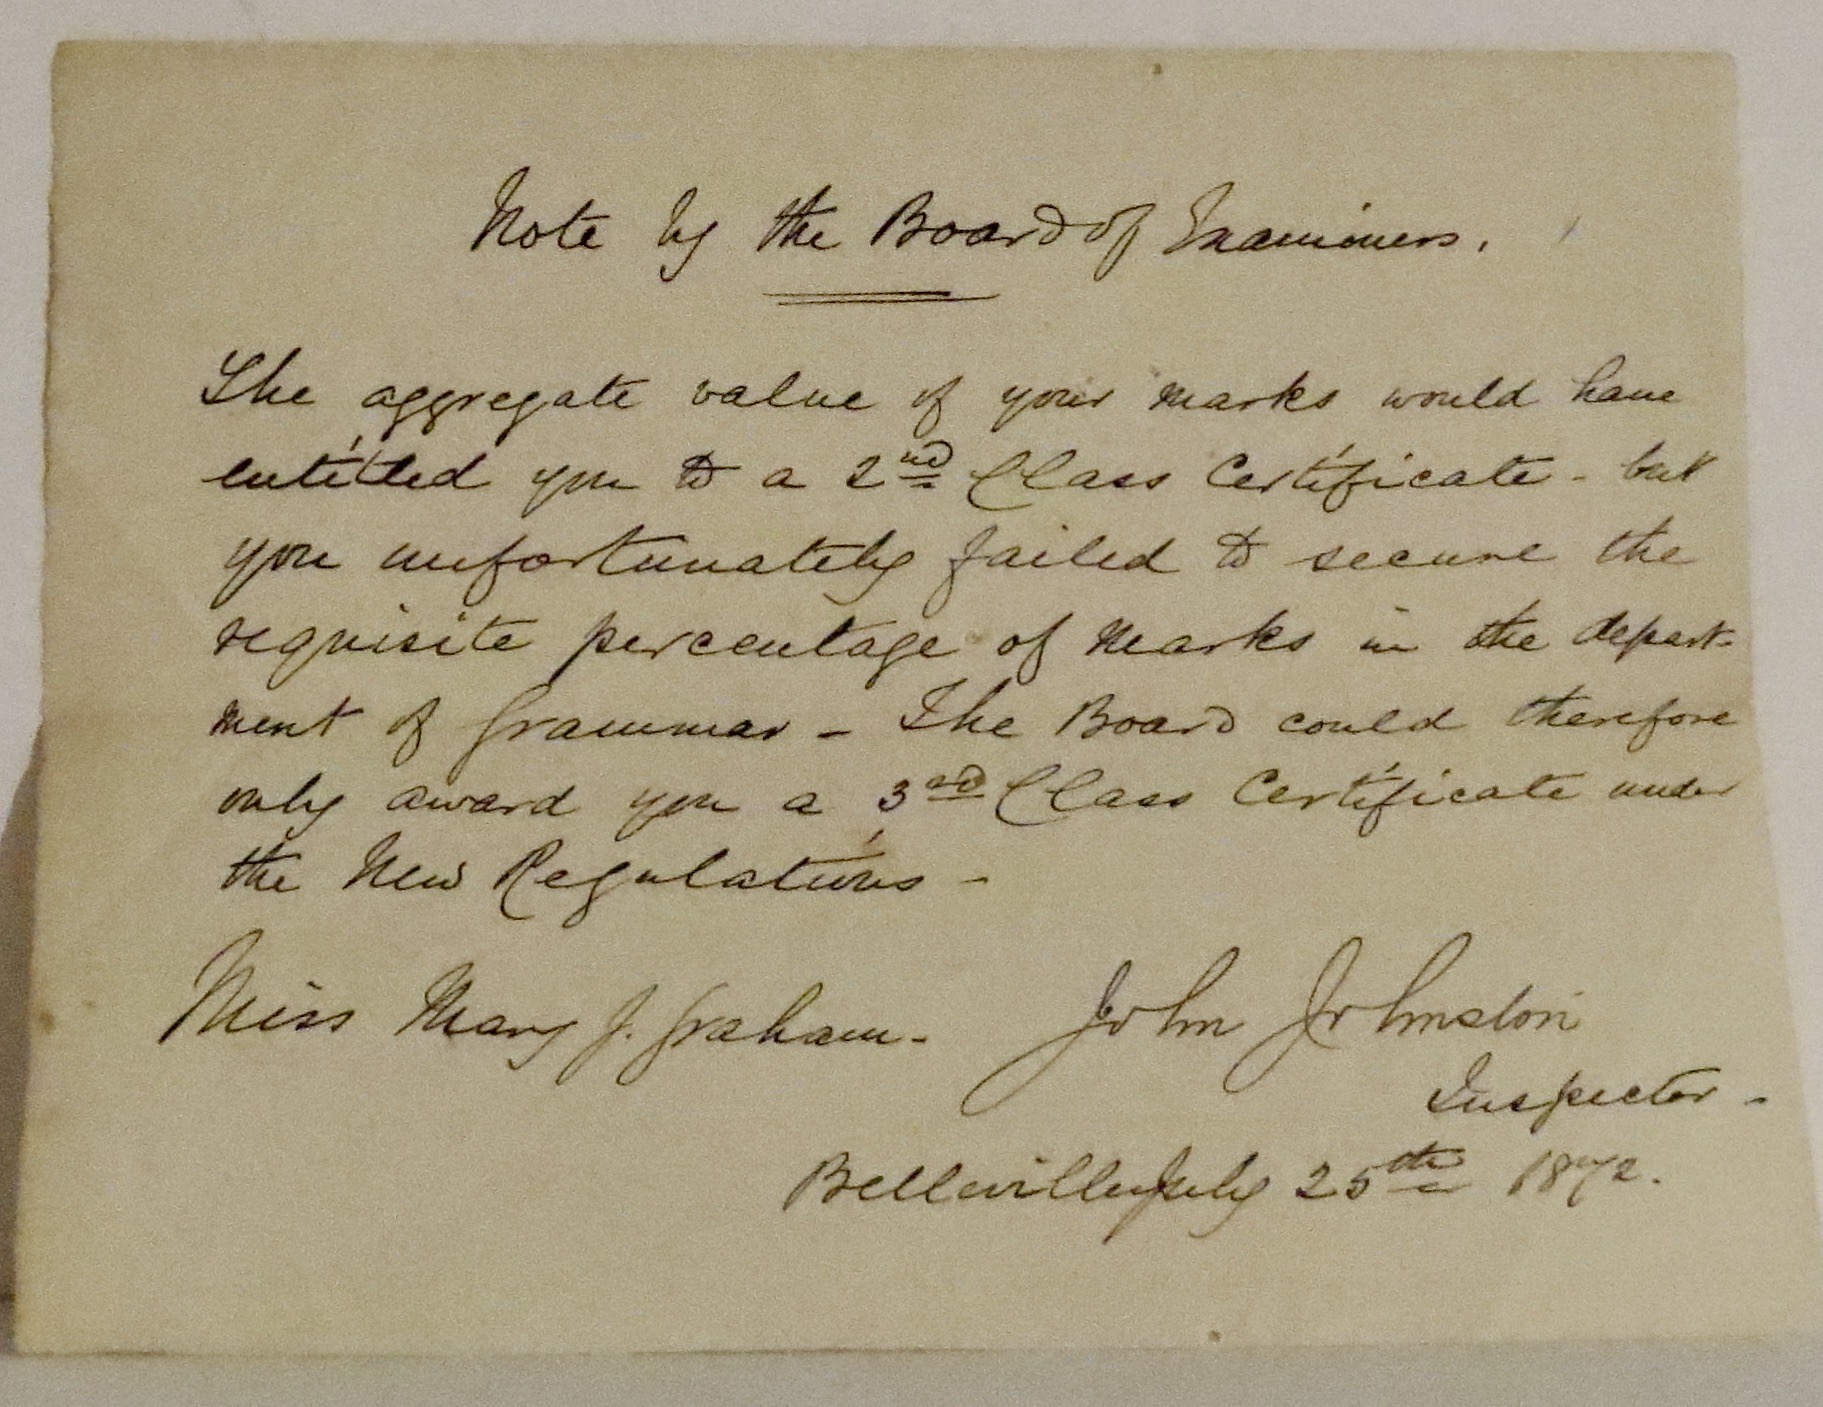 Note by the Board of Examiners.
The aggregate value of your marks would have
entitled you to a 2nd Class Certificate - but
you unfortunately failed to secure the
requisite percentage of marks in the depart-
ment of Grammar - The Board could therefore
only award you a 3rd Class Certificate under
the New Regulations -
Miss Mary J. Graham - John Johnston
Inspector -
Belleville July 25th 1872.